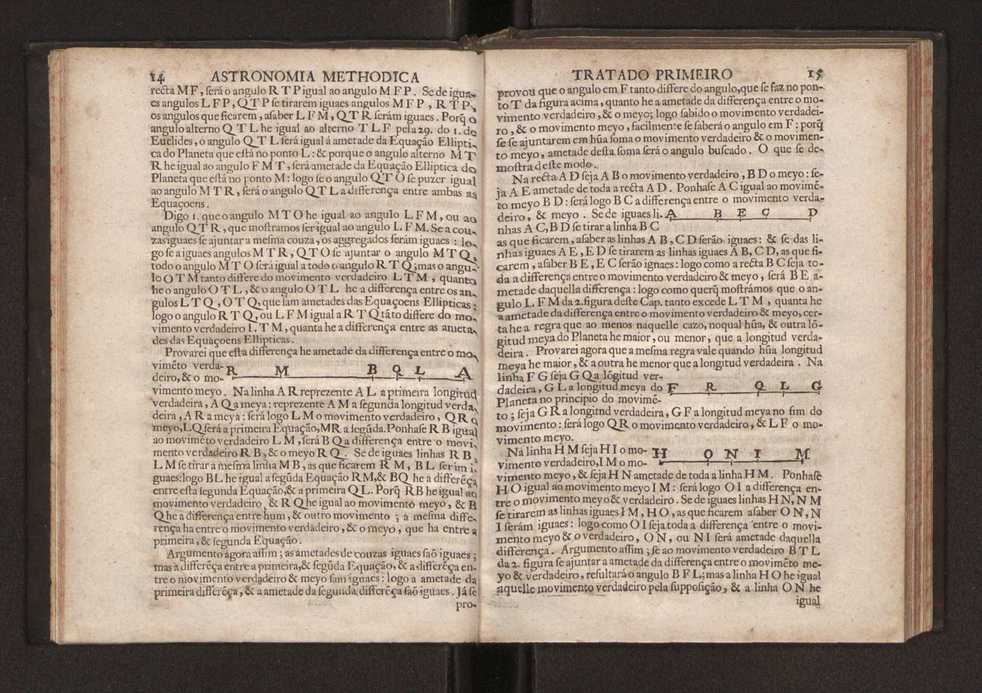 14 ASTRONOMIA METHODICA
recta MF, será o angulo R T P igual ao angulo M F P. Se de igua-
es angulos L F P, Q T P se tirarem iguaes angulos M F P, R T P,
os angulos que ficarem, asaber L F M, Q T R serám iguaes. Porq̃ o
angulo alterno Q T L he igual ao alterno T L F pela 29. do 1. de
Euclides, o angulo Q T L será igual á ametade da Equação Ellipti-
ca do Planeta que està no ponto L: & porque o angulo alterno M T
R he igual ao angulo F M T, será ametade da Equação Elliptica do
Planeta que està no ponto M: logo se o angulo Q T O se puzer igual
ao angulo M T R, será o angulo Q T L a differença entre ambas as
Equaçoens.
Digo 1. que o angulo M T O he igual ao angulo L F M, ou ao
angulo Q T R, que mostramos ser igual ao angulo L F M. Se a cou-
zas iguaes se ajuntar a mesma couza, os aggregados serám iguaes: lo-
go se a iguaes angulos M T R, Q T O se ajuntar o angulo M T Q,
todo o angulo M T O será igual a todo o angulo R T Q; mas o angu-
lo O T M tanto differe do movimento verdadeiro L T M, quanto
he o angulo O T L, & o angulo O T L he a differença entre os an-
gulos L T Q, O T Q, que sam ametades das Equaçoens Ellipticas:
logo o angulo R T Q, ou L F M igual a R T Q tãto differe do mo-
vimento verdadeiro L T M, quanta he a differença entre as ameta-
des das Equaçoens Ellipticas.
Provarei que esta differença he ametade da differença entre o mo-
vimẽto verda- R M B Q L A
deiro, & o mo-
vimento meyo. Na linha A R reprezente A L a primeira longitud
verdadeira, A Q a meya: reprezente A M a segunda longitud verda-
deira, A R a meya: será logo L M o movimento verdadeiro, Q R o
meyo, L Q será a primeira Equação, MR a segũda. Ponhase R B igual
ao movimẽto verdadeiro L M, será B Q a differença entre o movi-
mento verdadeiro R B, & o meyo R Q. Se de iguaes linhas R B,
L M se tirar a mesma linha M B, as que ficarem R M, B L serám i-
guaes: logo B L he igual a segũda Equação RM, & BQ he a differẽça
entre esta segunda Equação, & a primeira Q L. Porq̃ RB he igual ao
movimento verdadeiro, & R Q he igual ao movimento meyo, & B
Q he a differença entre hum, & outro movimento; a mesma diffe-
rença ha entre o movimento verdadeiro, & o meyo, que ha entre a
primeira, & segunda Equação.
Argumento agora assim; as ametades de couzas iguaes saõ iguaes;
mas a differẽça entre a primeira, & segũda Equação, & a differẽça en-
tre o movimento verdadeiro & meyo sam iguaes: logo a ametade da
primeira differẽça, & a ametade da segunda differẽça saõ iguaes. Já se
pro-
TRATADO PRIMEIRO 15
provou que o angulo em F tanto differe do angulo, que se faz no pon-
to T da figura acima, quanto he a ametade da differença entre o mo-
vimento verdadeiro, & o meyo; logo sabido o movimento verdadei-
ro, & o movimento meyo, facilmente se saberá o angulo em F: porq̃
se se ajuntarem em hũa soma o movimento verdadeiro & o movimen-
to meyo, ametade desta soma será o angulo buscado. O que se de-
mostra deste modo.
Na recta A D seja A B o movimento verdadeiro, B D o meyo: se-
ja A E ametade de toda a recta A D. Ponhase A C igual ao movimẽ-
to meyo B D: será logo B C a differença entre o movimento verda-
deiro, & meyo. Se de iguaes li- A B E C D
nhas A C, B D se tirar a linha B C
as que ficarem, asaber as linhas A B, C D serão iguaes: & se das li-
nhas iguaes A E, E D se tirarem as linhas iguaes A B, C D, as que fi-
carem, asaber B E, E C serão ignaes: logo como a recta B C seja to-
da a differença entre o movimento verdadeiro & meyo, será B E a-
metade daquella differença: logo como querq̃ mostrámos que o an-
gulo L F M da 2. figura deste Cap. tanto excede L T M, quanta he
a ametade da differença entre o movimento verdadeiro & meyo, cer-
ta he a regra que ao menos naquelle cazo, no qual hũa, & outra lõ-
gitud meya do Planeta he maior, ou menor, que a longitud verda-
deira. Provarei agora que a mesma regra vale quando hũa longitud
meya he maior, & a outra he menor que a longitud verdadeira. Na
linha F G seja G Q a lõgitud ver-
dadeira, G L a longitud meya do F R Q L G
Planeta no principio do movimẽ-
to; seja G R a longitnd verdadeira, G F a longitud meya no fim do
movimento: será logo Q R o movimento verdadeiro, & L F o mo-
vimento meyo.
Na linha H M seja H I o mo- H O N I M
vimento verdadeiro, I M o mo-
vimento meyo, & seja H N ametade de toda a linha H M. Ponhase
H O igual ao movimento meyo I M: será logo O I a differença en-
tre o movimento meyo & verdadeiro. Se de iguaes linhas H N, N M
se tirarem as linhas iguaes I M, H O, as que ficarem asaber O N, N
I serám iguaes: logo como O I seja toda a differença entre o movi-
mento meyo & o verdadeiro, O N, ou N I será ametade daquella
differença. Argumento assim; se ao movimento verdadeiro B T L
da 2. figura se ajuntar a ametade da differença entre o movimẽto me-
yo & verdadeiro, resultará o angulo B F L; mas a linha H O he igual
aquelle movimento verdadeiro pela supposição, & a linha O N he
igual